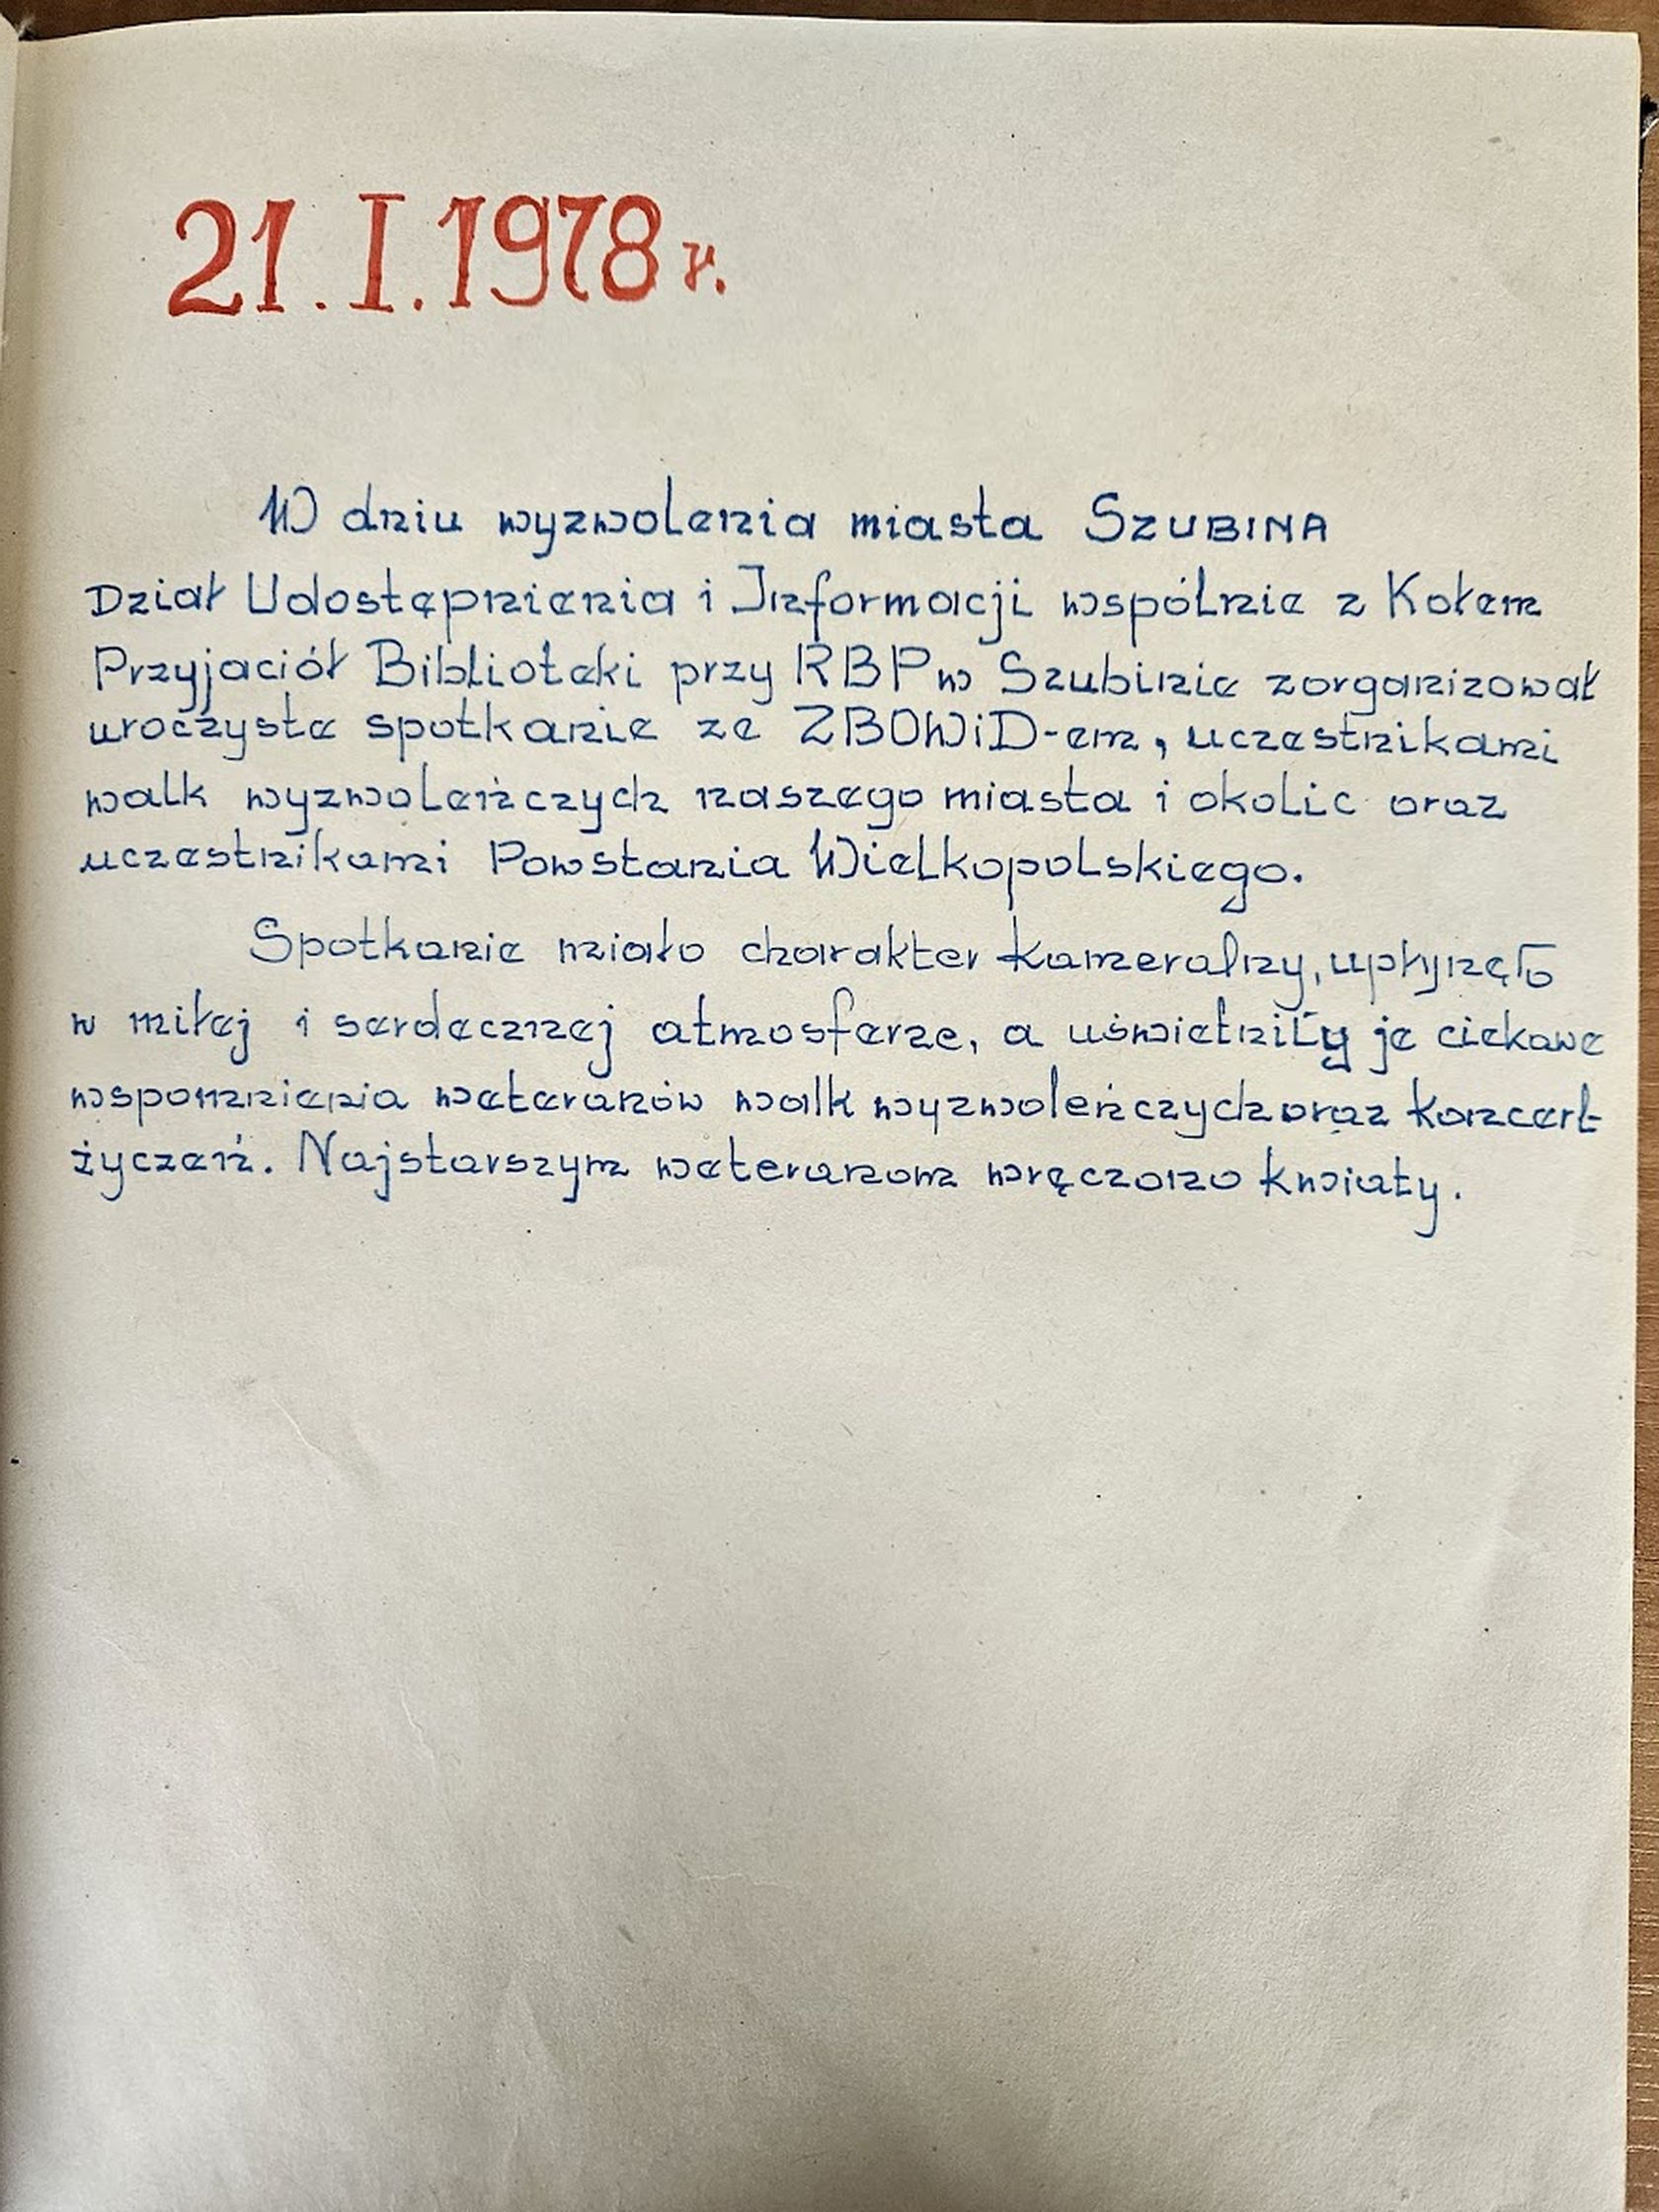 21. I. 1978 r.
W dniu wyzwolenia miasta SZUBINA
Dział Udostępnienia i Informacji wspólnie z Kołem
Przyjaciół Biblioteki przy RBP w Szubinie zorganizował
uroczyste spotkanie ze ZBOWiD-em, uczestnikami
walk wyzwoleńczych naszego miasta i okolic oraz
uczestnikami Powstania Wielkopolskiego.
Spotkanie miało charakter kameralny, upłynęło
w miłej i serdecznej atmosferze, a uświetniły je ciekawe
wspomnienia weteranów walk wyzwoleńczych oraz koncert
życzeń. Najstarszym weteranom wręczono kwiaty.